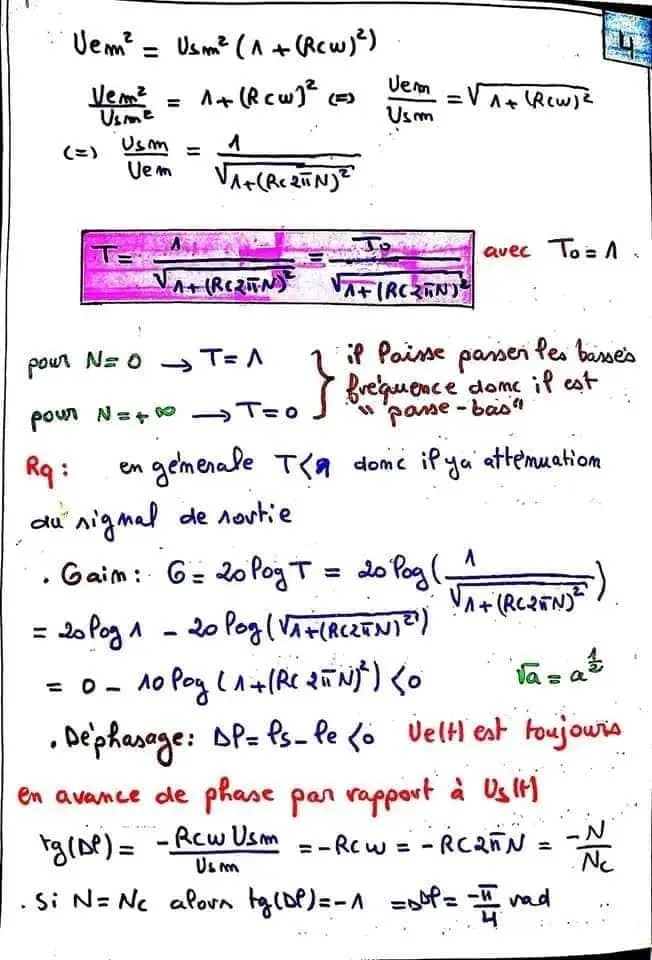 4
Uem² = Usm² (1 + (Rcw)²)
Uem²/Usm² = 1 + (Rcw)² (=) Uem/Usm = √(1 + (Rcw)²)
(=) Usm/Uem = 1/√(1+(Rc2πN)²)
T = 1/√(1+(RC2πN)²) = T₀/√(1+(RC2πN)²) avec T₀ = 1.
pour N = 0 → T = 1 } il laisse passer les basses
fréquence donc il est
pour N = +∞ → T = 0 "passe-bas"
Rq : en génerale T<1 donc il ya attenuation
du signal de sortie
. Gain : G = 20 log T = 20 log(1/√(1+(RC2πN)²))
= 20 log 1 - 20 log(√(1+(RC2πN)²))
= 0 - 10 log (1+(RC2πN)²) <0 √a = a^½
. Déphasage : Δφ = φs - φe <0 Ue(t) est toujours
en avance de phase par rapport à Us(t)
tg(Δφ) = -Rcw Usm/Usm = -Rcw = -RC2πN = -N/Nc
. Si N = Nc alors tg(Δφ) = -1 => Δφ = -π/4 rad